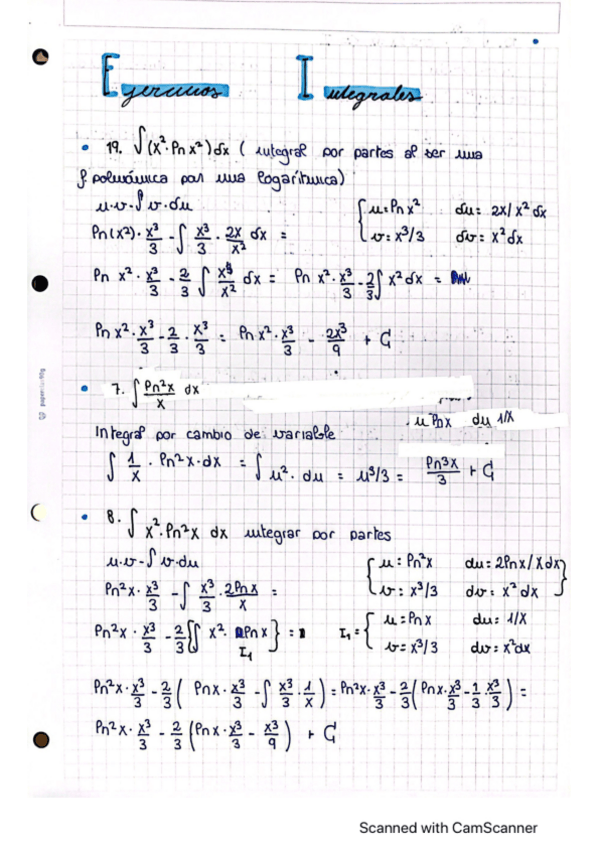 Ejercicios Integrales
• 19. ∫(x²·ln x²)dx ( integral por partes al ser una
f. polinómica por una logarítmica)
u·v-∫v·du { u=ln x² du= 2x/x² dx
ln(x²)·x³/3 - ∫ x³/3 · 2x/x² dx = { v=x³/3 dv= x²dx
ln x²·x³/3 - 2/3 ∫ x³/x² dx = ln x²·x³/3 - 2/3 ∫ x²dx =
ln x²·x³/3 - 2/3 · x³/3 = ln x²·x³/3 - 2x³/9 + C
• 7. ∫ ln²x/x dx
u lnx du 1/x
Integral por cambio de variable
∫ 1/x · ln²x·dx = ∫ u²· du = u³/3 = ln³x/3 + C
• 8. ∫ x²·ln²x dx integrar por partes
u·v-∫v·du { u= ln²x du= 2lnx/x dx }
ln²x·x³/3 - ∫ x³/3 · 2lnx/x = { v= x³/3 dv= x² dx }
ln²x · x³/3 - 2/3 {∫ x²· lnx } = I₁ = { u= lnx du= 1/x
I₁ { v= x³/3 dv= x²dx
ln²x·x³/3 - 2/3 ( lnx·x³/3 - ∫ x³/3 · 1/x ) = ln²x·x³/3 - 2/3 (lnx·x³/3 - 1/3 x³/3) =
ln²x·x³/3 - 2/3 (lnx·x³/3 - x³/9) + C
Scanned with CamScanner